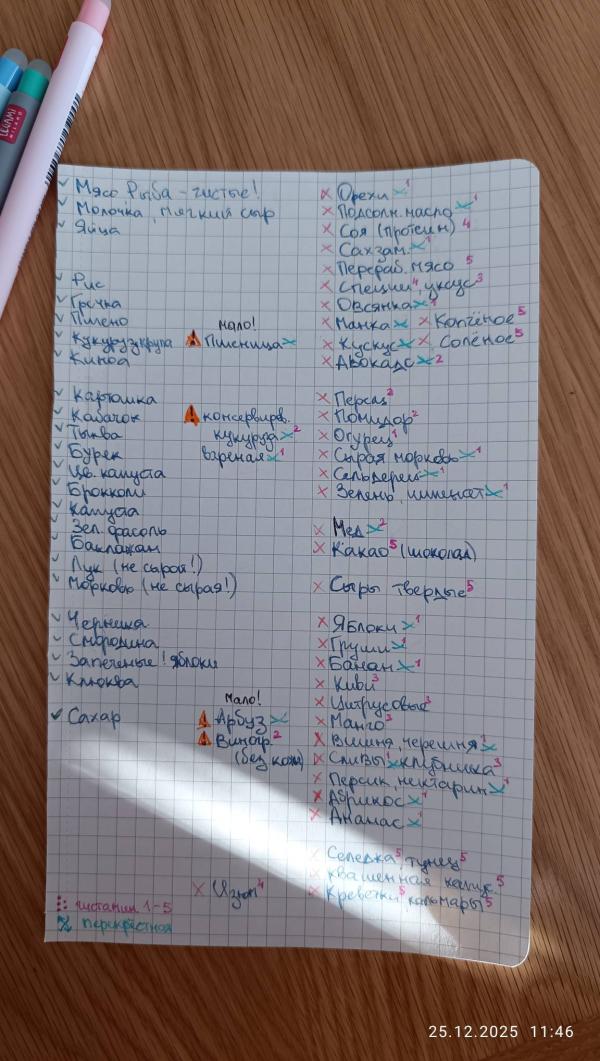 LEGAMI
MILANO
✓ Мясо Рыба - чистые!
✓ Молочка, мягкий сыр
✓ Яйца
✓ Рис
✓ Гречка
✓ Пшено
✓ Кукуруз. крупа
✓ Киноа
мало!
Пшеница
✓ Картошка
✓ Кабачок
✓ Тыква
✓ Бурек
✓ Цв. капуста
✓ Брокколи
✓ Капуста
✓ Зел. фасоль
✓ Баклажан
✓ Лук (не сырой!)
✓ Морковь (не сырая!)
консервиров.
кукуруза 2
вареная 1
✓ Черника
✓ Смородина
✓ Запеченые! яблоки
✓ Клюква
✓ Сахар
Мало!
Арбуз
Виногр. 2
(без кожи)
× Изюм 4
гистамин 1-5
перекрёстная
× Орехи 1
× Подсолн. масло 1
× Соя (протеин) 4
× Сахзам. 1
× Перераб. мясо 5
× Специи 4, уксус 3
× Овсянка 1
× Манка × Копчёное 5
× Кускус × Солёное 5
× Авокадо 2
× Персац 2
× Помидор 2
× Огурец 1
× Сырая морковь 1
× Сельдерей 1
× Зелень, шпинат 1
× Мед 2
× Какао 5 (шоколад)
× Сыры твердые 5
× Яблоки 1
× Груши 1
× Банан 1
× Киви 3
× Цитрусовые 3
× Манго 3
× Вишня, черешня 1
× Сливы 1 клубника 3
× Персик, нектарин 1
× Абрикос 1
× Ананас 1
× Селедка 5, тунец 5
× квашенная капус. 5
× Креветки 5, кальмары 5
25.12.2025 11:46